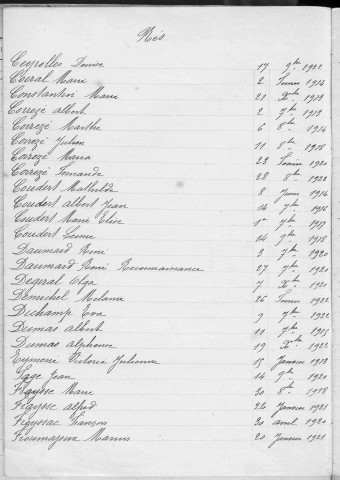 Nés
Ceyrolles Denise 17 9bre 1922
Corral Marie 2 Février 1914
Constantin Marie 21 Xbre 1913
Correzé Albert 2 7bre 1913
Correzé Marthe 6 8bre 1914
Correzé Julien 11 8bre 1918
Correzé Maria 28 Février 1920
Correzé Fernande 28 8bre 1922
Coudert Mathilde 8 Juin 1914
Coudert Albert Jean 14 7bre 1916
Coudert Marie Elise 1er 7bre 1917
Coudert 14 9bre 1918
Daumard René 3 9bre 1920
Daumard René Reconnaissance 27 9bre 1920
Degiral Olga 7 Xbre 1920
Demichel Melanie 26 Février 1922
Duchamp Eva 9 7bre 1922
Dumas Albert 19 7bre 1915
Dumas Alphonse 19 Xbre 1922
Eymerie Victoria Julienne 15 Janvier 1913
Fage Jean 14 9bre 1920
Faysse Marie 30 8bre 1918
Faysse Alfred 26 Janvier 1921
Feyssac François 20 Avril 1920
Fioumajoux Marius 20 Janvier 1921